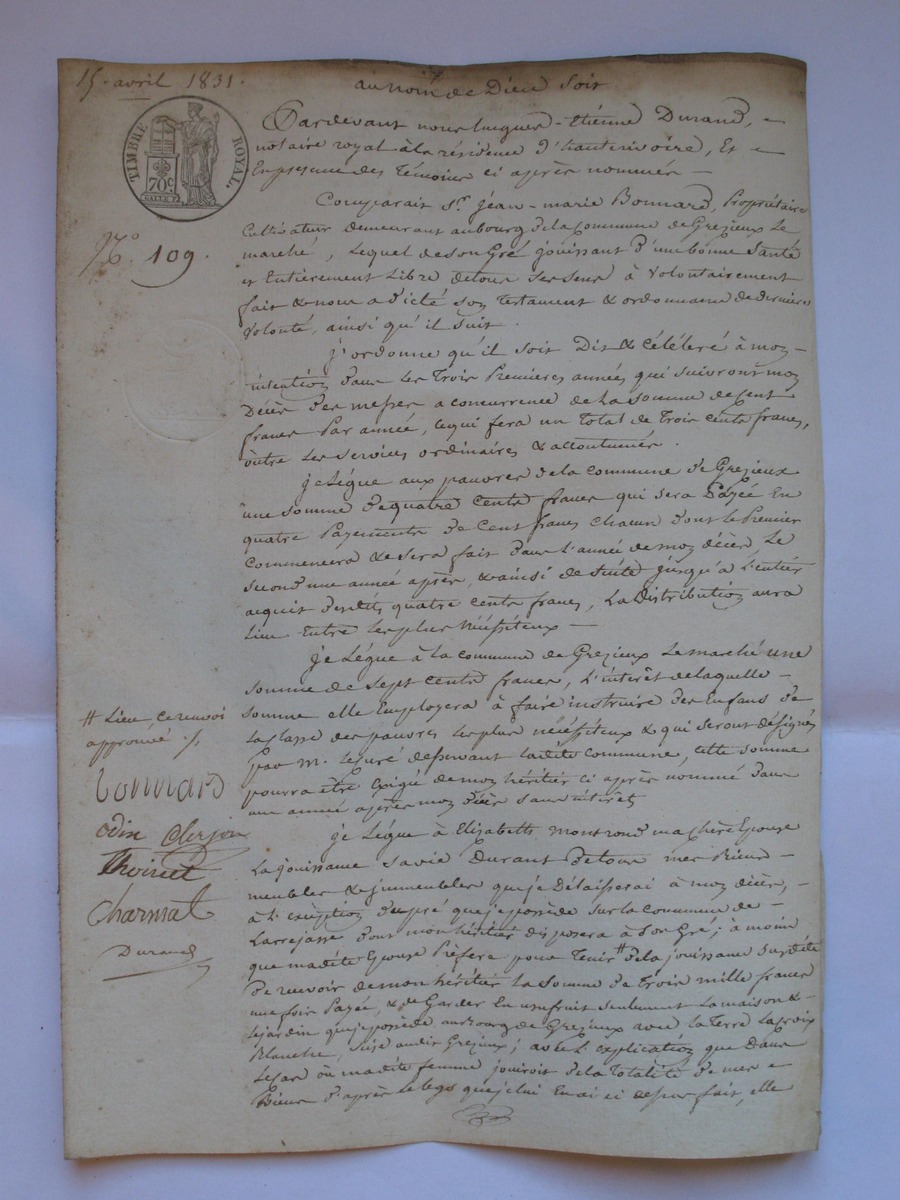 15. avril 1831.
au nom de Dieu soit
TIMBRE ROYAL
70c.
N.o 109.
Pardevant nous hugues-Etiénne Durand,
notaire royal à la résidence d'hauterivoire, Et
En presence des Témoins ci après nommés
Comparait Sr. jean-marie Bonnard, Propriétaire
Cultivateur demeurant au bourg de la Commune de Grezieux Le
marché, Lequel de son Gré jouissant d'une bonne Santé
et Entiérement Libre de tous ses sens à volontairement
fait & nous a dicté son Testament & ordonnance de dernière
volonté, ainsi qu'il suit.
j'ordonne qu'il soit Dit & Célébré à mon
intention dans les Trois Premieres années qui suivront mon
Décès des messes a concurrence de La somme de Cent
francs Par année, cequi fera un Total de Trois cents francs,
outre Les services ordinaires & accoutumés.
je Légue aux pauvres de la commune de Grezieux
une somme de quatre cents francs qui sera Payée En
quatre Payements de Cent francs chacun dont le Premier
Commencera & sera fait dans L'année de mon décès, Le
second une année après, & ainsi de suite jusqu'à L'entier
acquit desdits quatre cents francs, La distribution aura
Lieu Entre les plus nécessiteux
je Légue à la commune de Grezieux Le marché une
somme de sept cents francs, L'intérêt de laquelle
somme elle Employera à faire instruire des Enfans de
La Classe des pauvres les plus nécéssiteux & qui seront désignés
par m. Le Curé desservant ladite commune, cette somme
pourra être Exigée de mon héritier ci après nommé dans
une année après mon décès sans intérêt
je Légue à Elizabeth Montrond ma chère Epouse
La jouissance sa vie Durant de tous mes Biens
meubles & immeubles que je Délaisserai à mon décès,
à L'exception du pré que je possède sur la commune de
Larrajasse dont mon héritier disposera à son Gré; à moins
que madite Epouse Préfère pour Tenir # de la jouissance susdite
De recevoir de mon héritier La somme de Trois mille francs
une fois Payée, & de Garder En usufruit seulement La maison &
Le jardin que je possède au Bourg de Grezieux avec la Terre Lacroix
Blanche, sise audit Grezieux; avec L'explication que Dans
Le cas où madite femme jouiroit de la Totalité de mes
Biens d'après le legs que je lui En ai ci dessus fait, elle
# Lieu, ce renvoi
approuvé ./.
Bonnard
odin Clerjon
Thoinet
Charmat
Durand